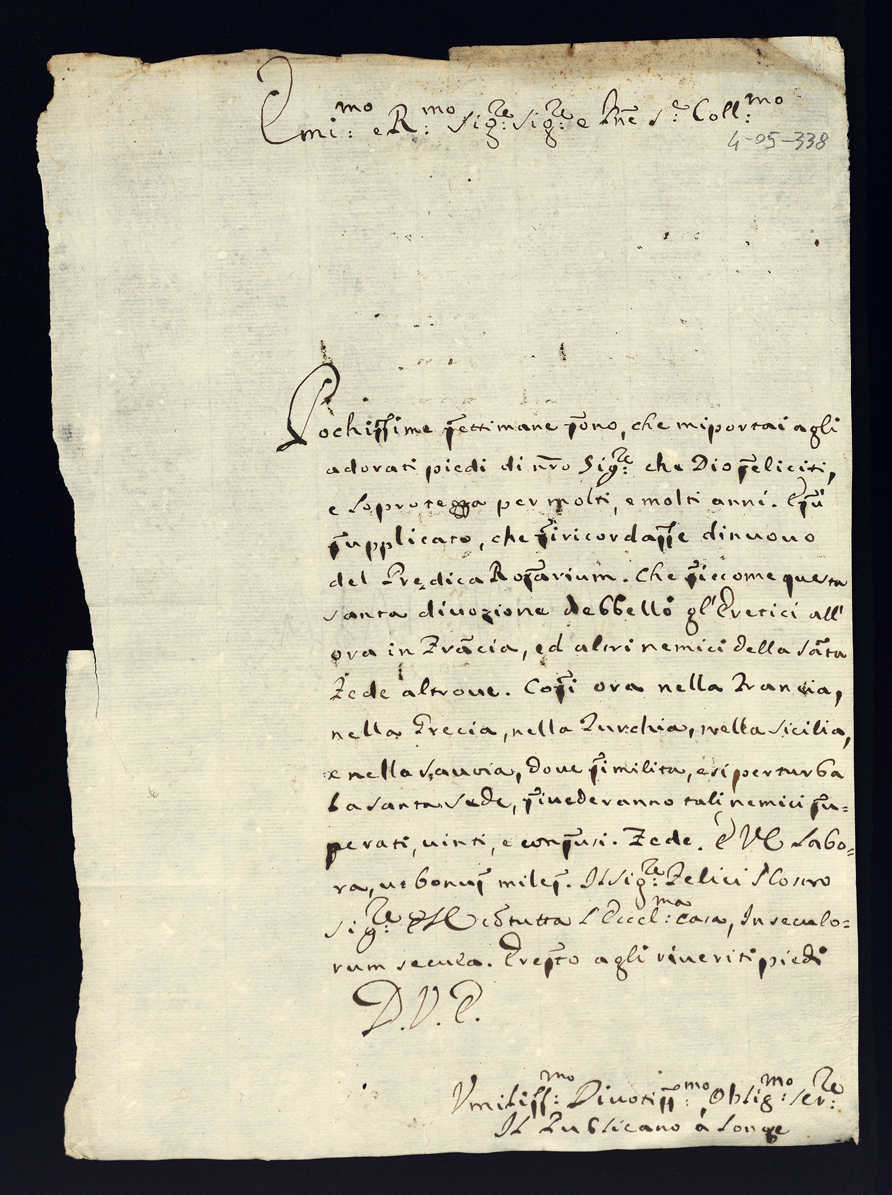 Emi:mo e R:mo Sig:re Sig:re e Pne S:e Coll:mo
4-05-338
Pochissime settimane sono, che mi portai agli
adorati piedi di nr̃o Sig:re che Dio feliciti,
e lo protegga per molti, e molti anni. E fù
supplicato, che si ricordasse di nuovo
del Predica Rosarium. Che siccome questa
santa divozione debbellò gl'Eretici all'
ora in Frãcia, ed altri nemici della Sãta
Fede altrove. Così ora nella Francia,
nella Grecia, nella Turchia, nella Sicilia,
e nella Savoia, dove si milita, e si perturba
la santa Sede, si vederanno tali nemici su=
perati, vinti, e confusi. Fede. E VE labo=
ra, ut bonus miles. Il Sig:re Felici
Sig:re cõ tutta l'Eccel:ma casa, In seculo=
rum secula. E resto agli riveriti piedi
D.V.E.
Umiliss:mo Divotiss:mo Oblig:mo Ser:re
Il Publicano à longe